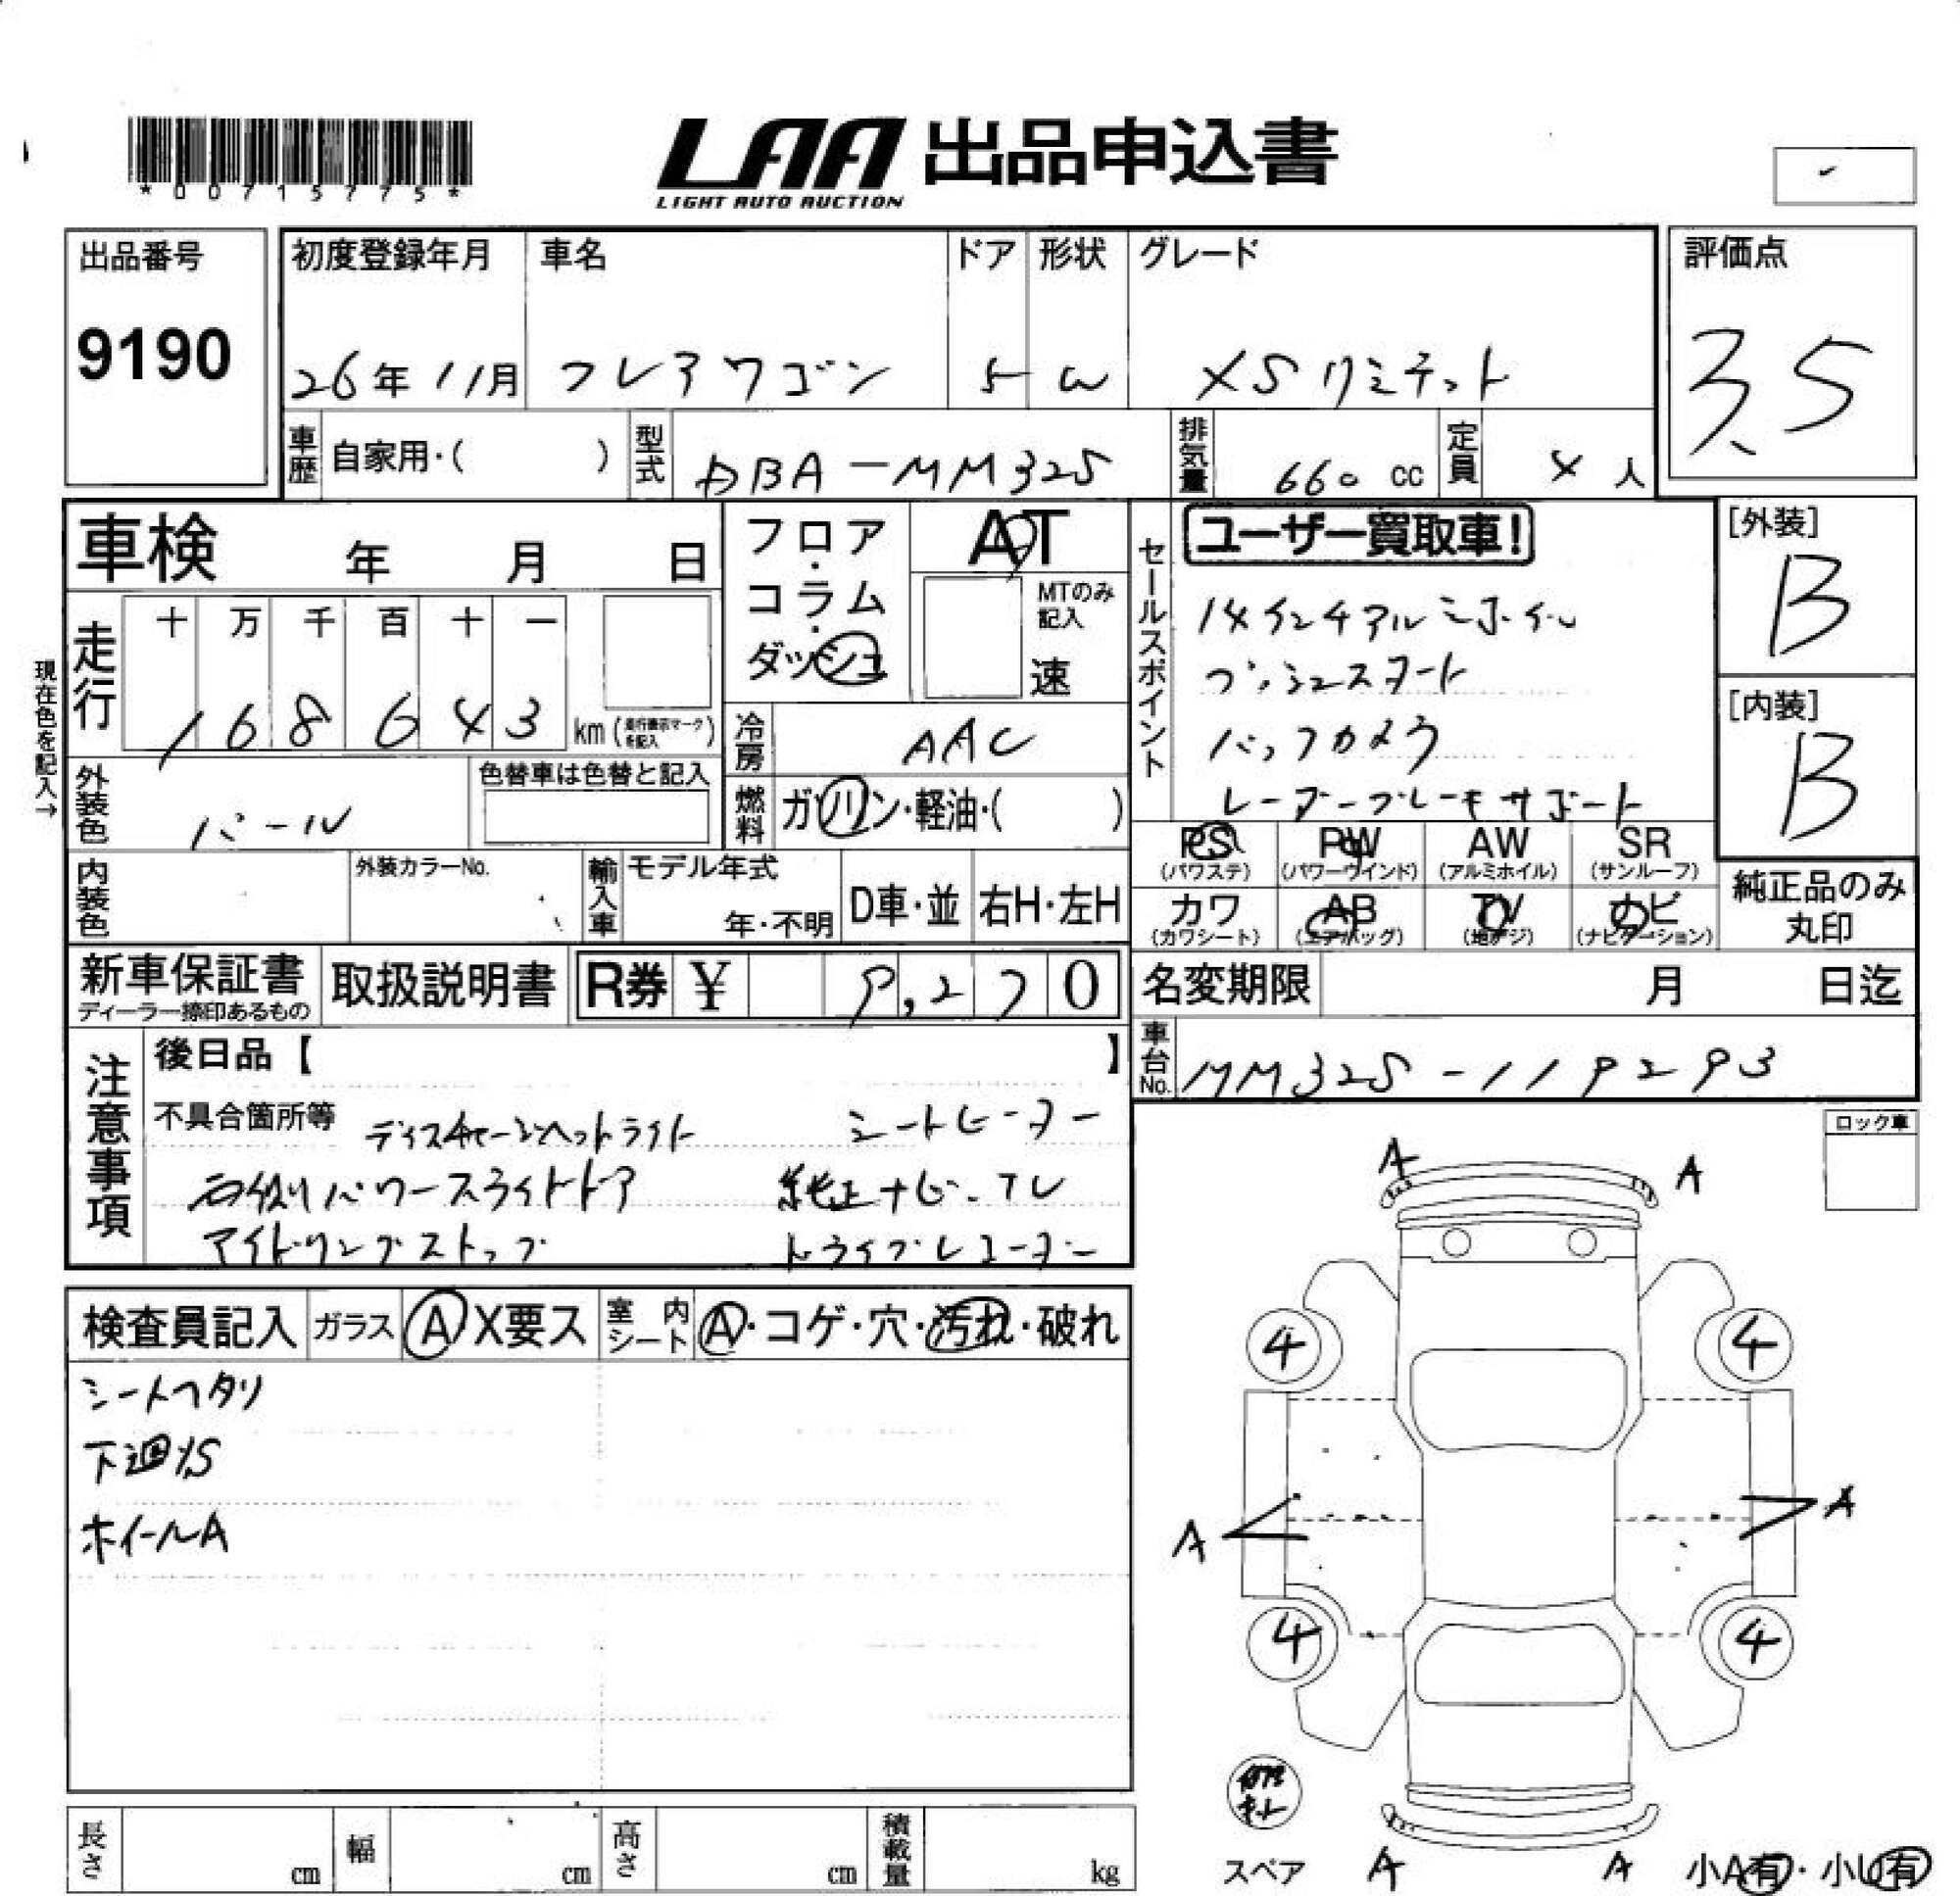 *00715775*
LAA 出品申込書
LIGHT AUTO AUCTION
出品番号
9190
初度登録年月
26年11月
車名
フレアワゴン
ドア
5
形状
W
グレード
XSリミテット
評価点
3.5
車歴 自家用・( )
型式 DBA-MM32S
排気量 660 cc
定員 4 人
車検 年 月 日
フロア・コラム・ダッシュ
AT
MTのみ記入
速
セールスポイント
ユーザー買取車!
14インチアルミホイル
プッシュスタート
バックカメラ
レーダーブレーキサポート
[外装]
B
[内装]
B
現在色を記入→
走行
十 万 千 百 十 一
1 6 8 6 4 3 km (走行表示マークを記入)
冷房 AAC
外装色 パール
色替車は色替と記入
燃料 ガソリン・軽油・( )
PS (パワステ)
PW (パワーウインド)
AW (アルミホイル)
SR (サンルーフ)
カワ (カワシート)
AB (エアバッグ)
TV (地デジ)
ナビ (ナビゲーション)
純正品のみ丸印
内装色
外装カラーNo.
輸入車
モデル年式
年・不明
D車・並
右H・左H
新車保証書
ディーラー捺印あるもの
取扱説明書
R券 ¥ 9,270
名変期限 月 日迄
車台No. MM32S-119293
注意事項
後日品【 】
不具合箇所等
ディスチャージヘットライト シートヒーター
右側パワースライトドア 純正ナビ・テレ
アイドリングストップ トライブレコーダー
ロック車
検査員記入
ガラス A X要ス
室内シート A・コゲ・穴・汚れ・破れ
シートヘタリ
下廻りS
ホイールA
A A
4 4
A A
4 4
スペア
A A
小A有・小U有
長さ cm
幅 cm
高さ cm
積載量 kg